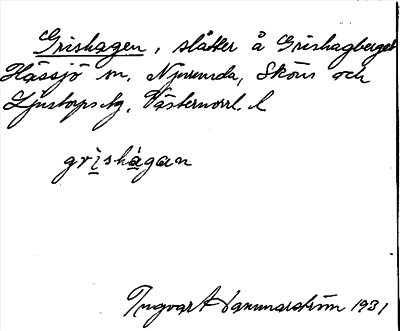 Grishagen, slåtter å Grishagberget
Hässjö sn, Njurunda, Sköns och
Ljustorps tg, Västernorrl. l.
grishagan
Ingvar 1931